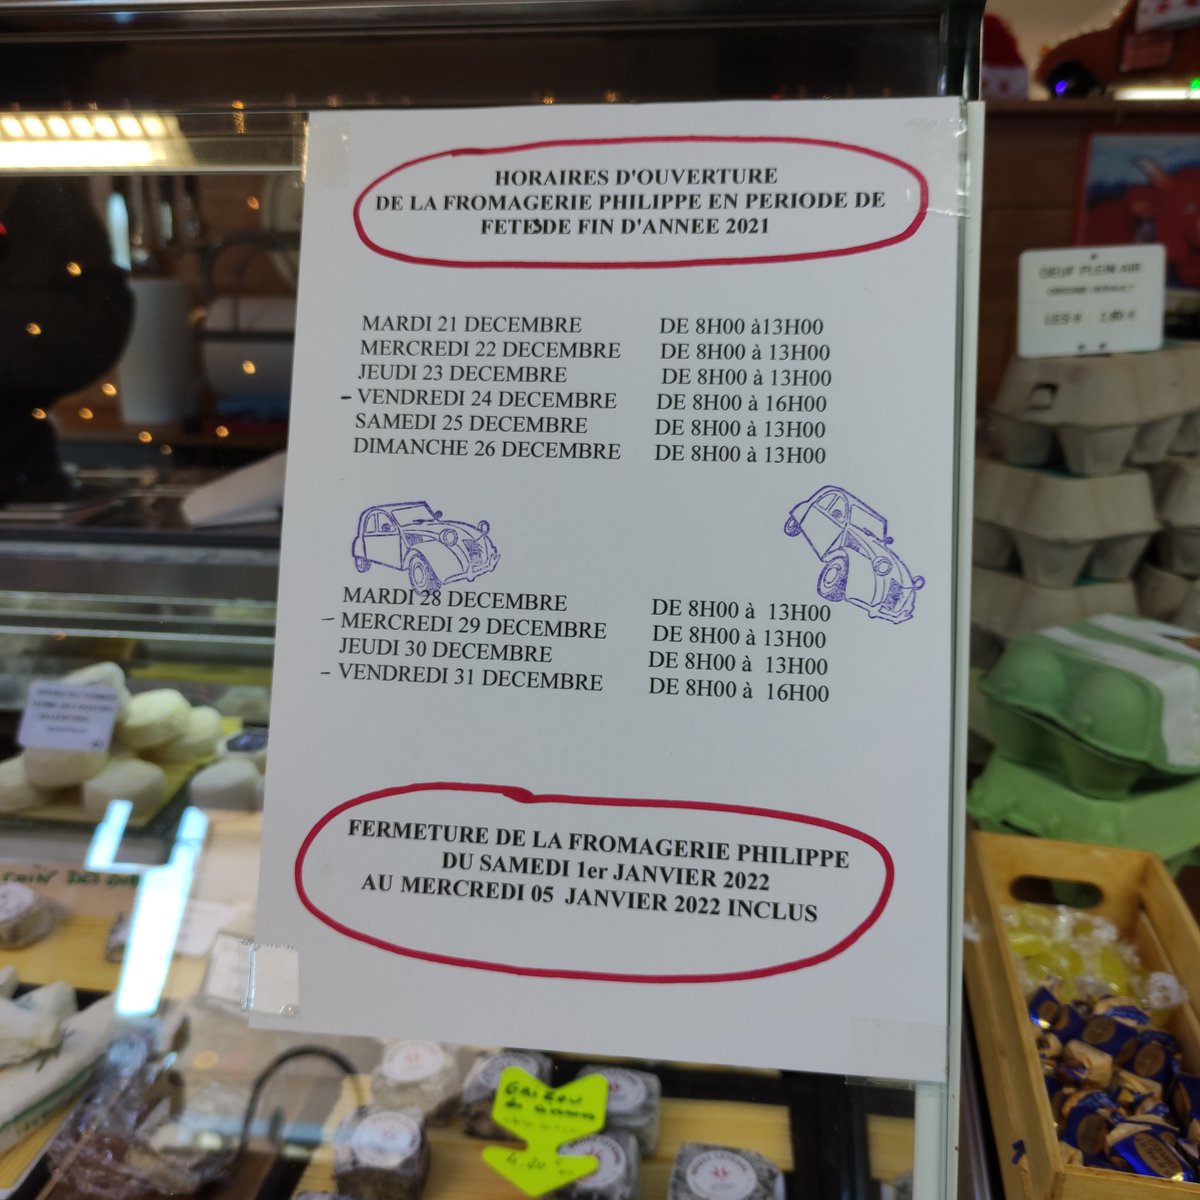 HORAIRES D'OUVERTURE
DE LA FROMAGERIE PHILIPPE EN PERIODE DE
FETES DE FIN D'ANNEE 2021
MARDI 21 DECEMBRE DE 8H00 à13H00
MERCREDI 22 DECEMBRE DE 8H00 à 13H00
JEUDI 23 DECEMBRE DE 8H00 à 13H00
- VENDREDI 24 DECEMBRE DE 8H00 à 16H00
SAMEDI 25 DECEMBRE DE 8H00 à 13H00
DIMANCHE 26 DECEMBRE DE 8H00 à 13H00
MARDI 28 DECEMBRE DE 8H00 à 13H00
- MERCREDI 29 DECEMBRE DE 8H00 à 13H00
JEUDI 30 DECEMBRE DE 8H00 à 13H00
- VENDREDI 31 DECEMBRE DE 8H00 à 16H00
FERMETURE DE LA FROMAGERIE PHILIPPE
DU SAMEDI 1er JANVIER 2022
AU MERCREDI 05 JANVIER 2022 INCLUS
OEUF PLEIN AIR
LES 6